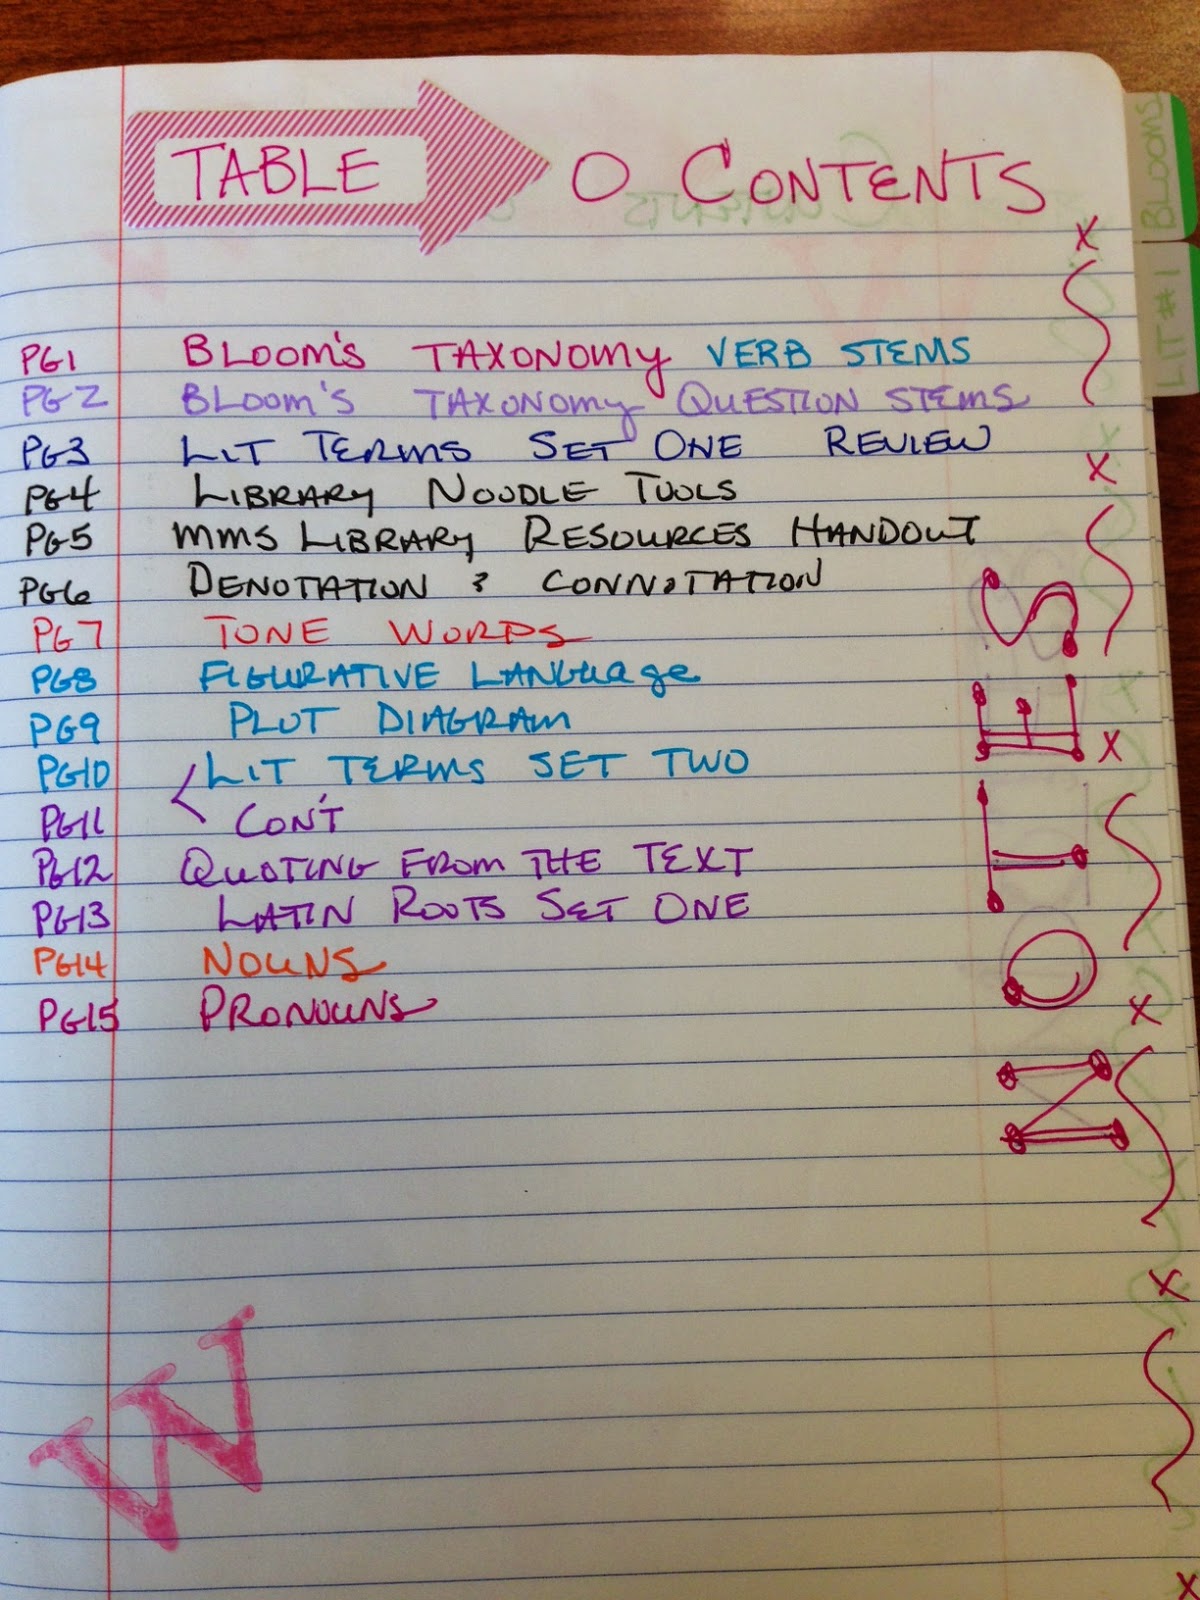 TABLE O CONTENTS
PG1 BLOOM'S TAXONOMY VERB STEMS
PG2 BLOOM'S TAXONOMY QUESTION STEMS
PG3 LIT TERMS SET ONE REVIEW
PG4 LIBRARY NOODLE TOOLS
PG5 MMS LIBRARY RESOURCES HANDOUT
PG6 DENOTATION & CONNOTATION
PG7 TONE WORDS
PG8 FIGURATIVE LANGUAGE
PG9 PLOT DIAGRAM
PG10 LIT TERMS SET TWO
PG11 CON'T
PG12 QUOTING FROM THE TEXT
PG13 LATIN ROOTS SET ONE
PG14 NOUNS
PG15 PRONOUNS
NOTES
W
BLOOMS
LIT #1